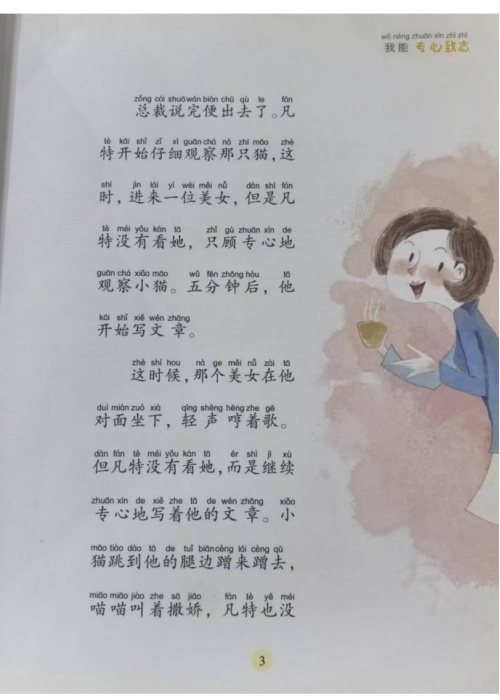 wǒ néng zhuān xīn zhì zhì
我能 专心致志
zǒng cái shuō wán biàn chū qù le fán
总裁说完便出去了。凡
tè kāi shǐ zǐ xì guān chá nà zhī māo zhè
特开始仔细观察那只猫，这
shí jìn lái yí wèi měi nǚ dàn shì fán
时，进来一位美女，但是凡
tè méi yǒu kàn tā zhǐ gù zhuān xīn de
特没有看她，只顾专心地
guān chá xiǎo māo wǔ fēn zhōng hòu tā
观察小猫。五分钟后，他
kāi shǐ xiě wén zhāng
开始写文章。
zhè shí hou nà ge měi nǚ zài tā
这时候，那个美女在他
duì miàn zuò xià qīng shēng hēng zhe gē
对面坐下，轻声哼着歌。
dàn fán tè méi yǒu kàn tā ér shì jì xù
但凡特没有看她，而是继续
zhuān xīn de xiě zhe tā de wén zhāng xiǎo
专心地写着他的文章。小
māo tiào dào tā de tuǐ biān cèng lái cèng qù
猫跳到他的腿边蹭来蹭去，
miāo miāo jiào zhe sā jiāo fán tè yě méi
喵喵叫着撒娇，凡特也没
3